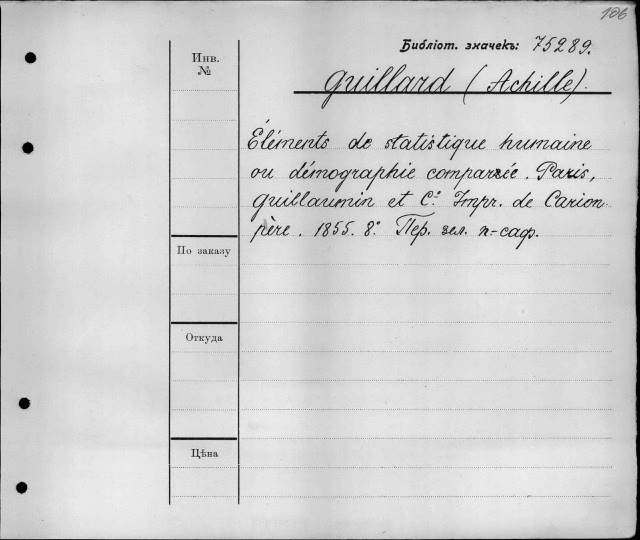 106
Библіот. значекъ: 75289.
Инв.
№
Guillard (Achille).
Eléments de statistique humaine
ou démographie comparée. Paris,
Guillaumin et Cᵒ. Impr. de Carion
père. 1855. 8°. Пер. зел. п-саф.
По заказу
Откуда
Цѣна